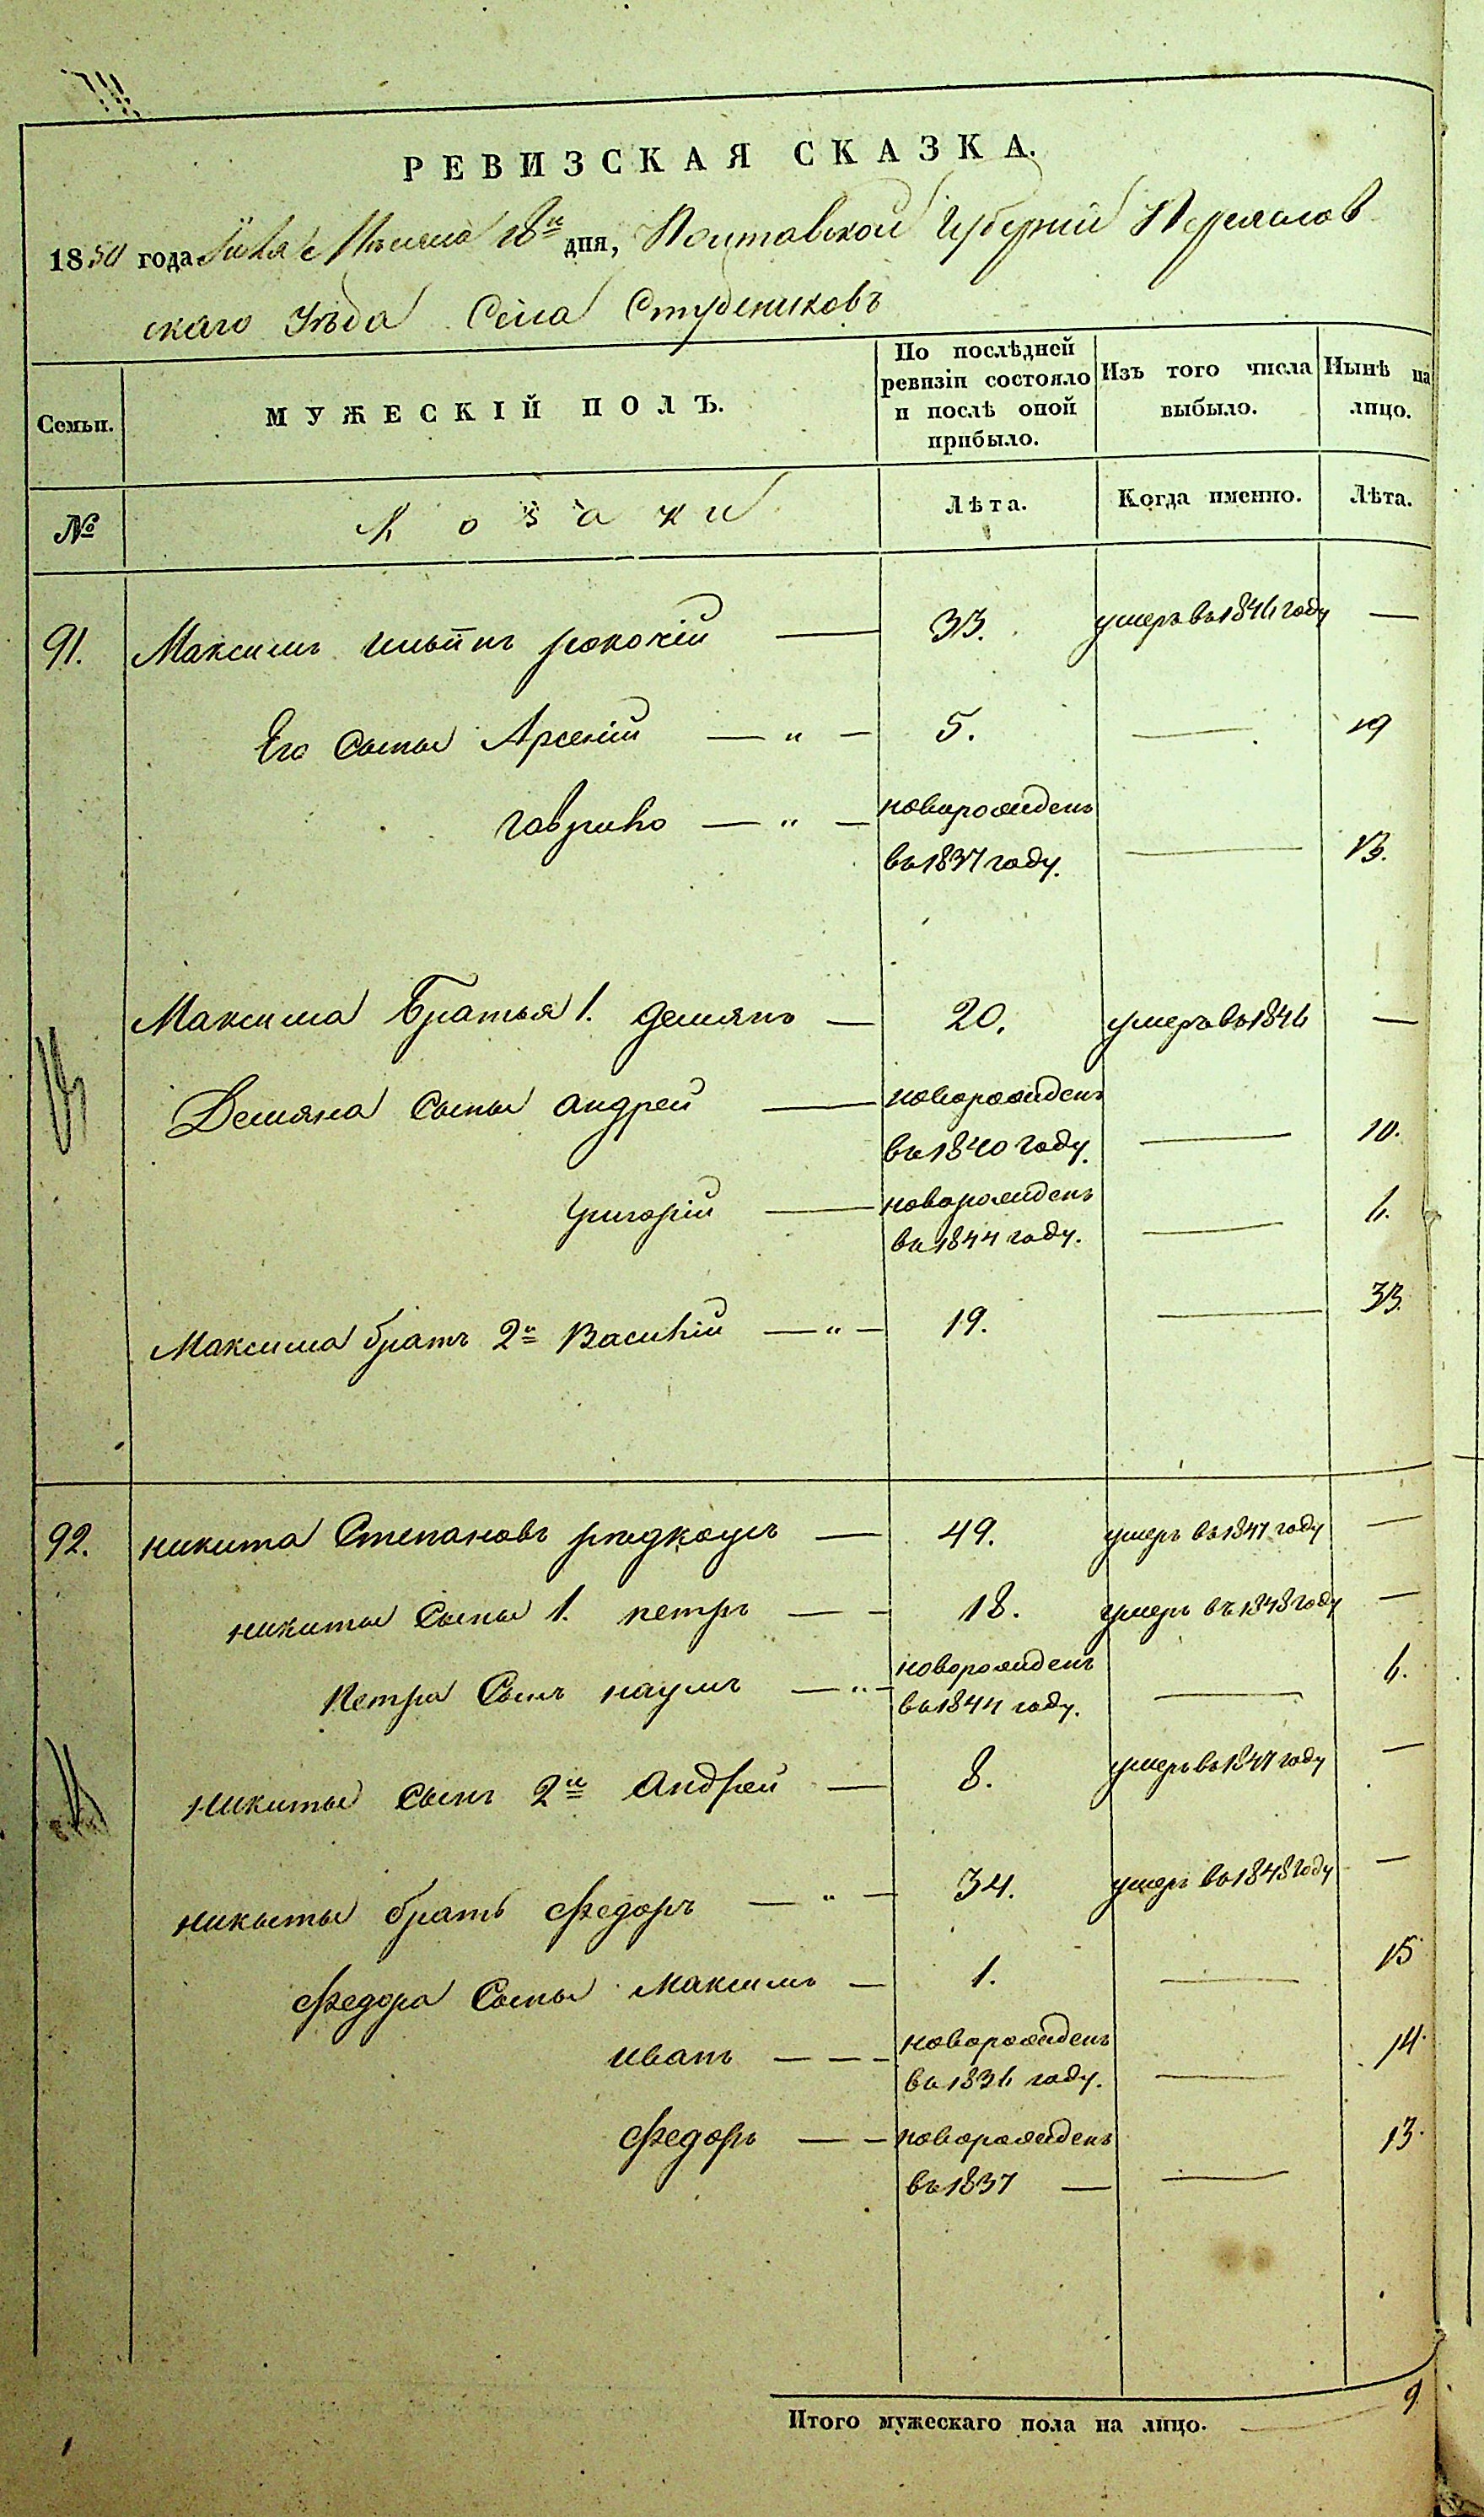 РЕВИЗСКАЯ СКАЗКА.
1850 года Июля Месяца 18го дня, Полтавской Губерніи Переяслов
скаго Уѣзда Села Студениковъ
Семьи.
МУЖЕСКІЙ ПОЛЪ.
По послѣдней ревизіи состояло и послѣ оной прибыло.
Изъ того числа выбыло.
Нынѣ на лицо.
№
Козаки
Лѣта.
Когда именно.
Лѣта.
91. Максимъ Ильинъ рокочій — 33. умеръ въ 1846 году —
Его Сыны Арсеній — „ — 5. — 19
Гаврило — „ — новорожденъ
въ 1837 году. — 13.
Максима Братья 1. Демянъ — 20. умеръ въ 1846 —
Демяна Сыны андрей — новорожденъ
въ 1840 году. — 10.
Григорій — новорожденъ
въ 1844 году. — 6.
Максима братъ 2й Василій — „ — 19. — 33.
92. никита Степановъ редкоусъ — 49. умеръ въ 1847 году —
никиты Сыны 1. петръ — — 18. умеръ въ 1848 году —
Петра Сынъ наумъ — „ — новорожденъ
въ 1844 году. — 6.
никиты Сынъ 2й Андрей — 8. умеръ въ 1847 году —
никиты братъ Федоръ — „ — 34. умеръ въ 1848 году —
Федора Сыны Максимъ — 1. — 15
иванъ — — — новорожденъ
въ 1836 году. — 14.
Федоръ — — новорожденъ
въ 1837 — — 13.
Итого мужескаго пола на лицо. — 9